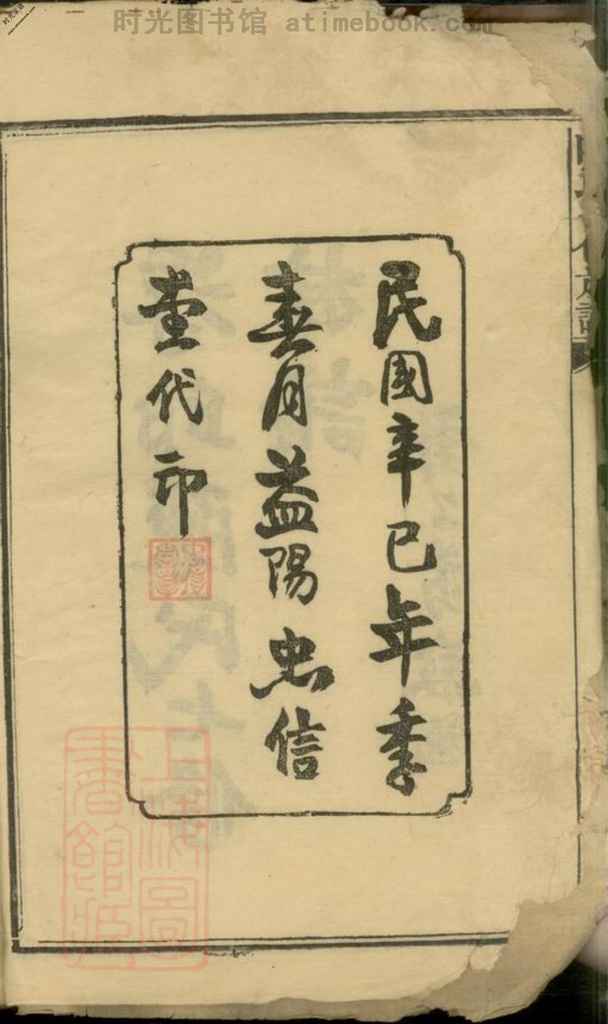 时光图书馆 atimebook.com
民國辛巳年季
春月益陽忠信
堂代印
上海圖
書館藏